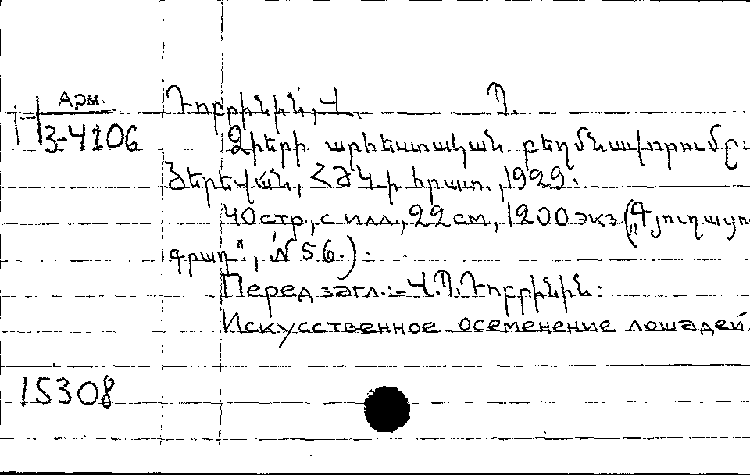 Арм.
3-4106
Դոբրինին, Վ. Պ.
Ձիերի արհեստական բեղմնավորումը:
Յերեվան, ՀՖԿ-ի հրատ., 1929:
40 стр., с илл., 22 см, 1200 экз. („Գյուղացու
գրադ.", № 56.):
Перед загл.:– Վ. Պ. Դոբրինին:
Искусственное осеменение лошадей
15308